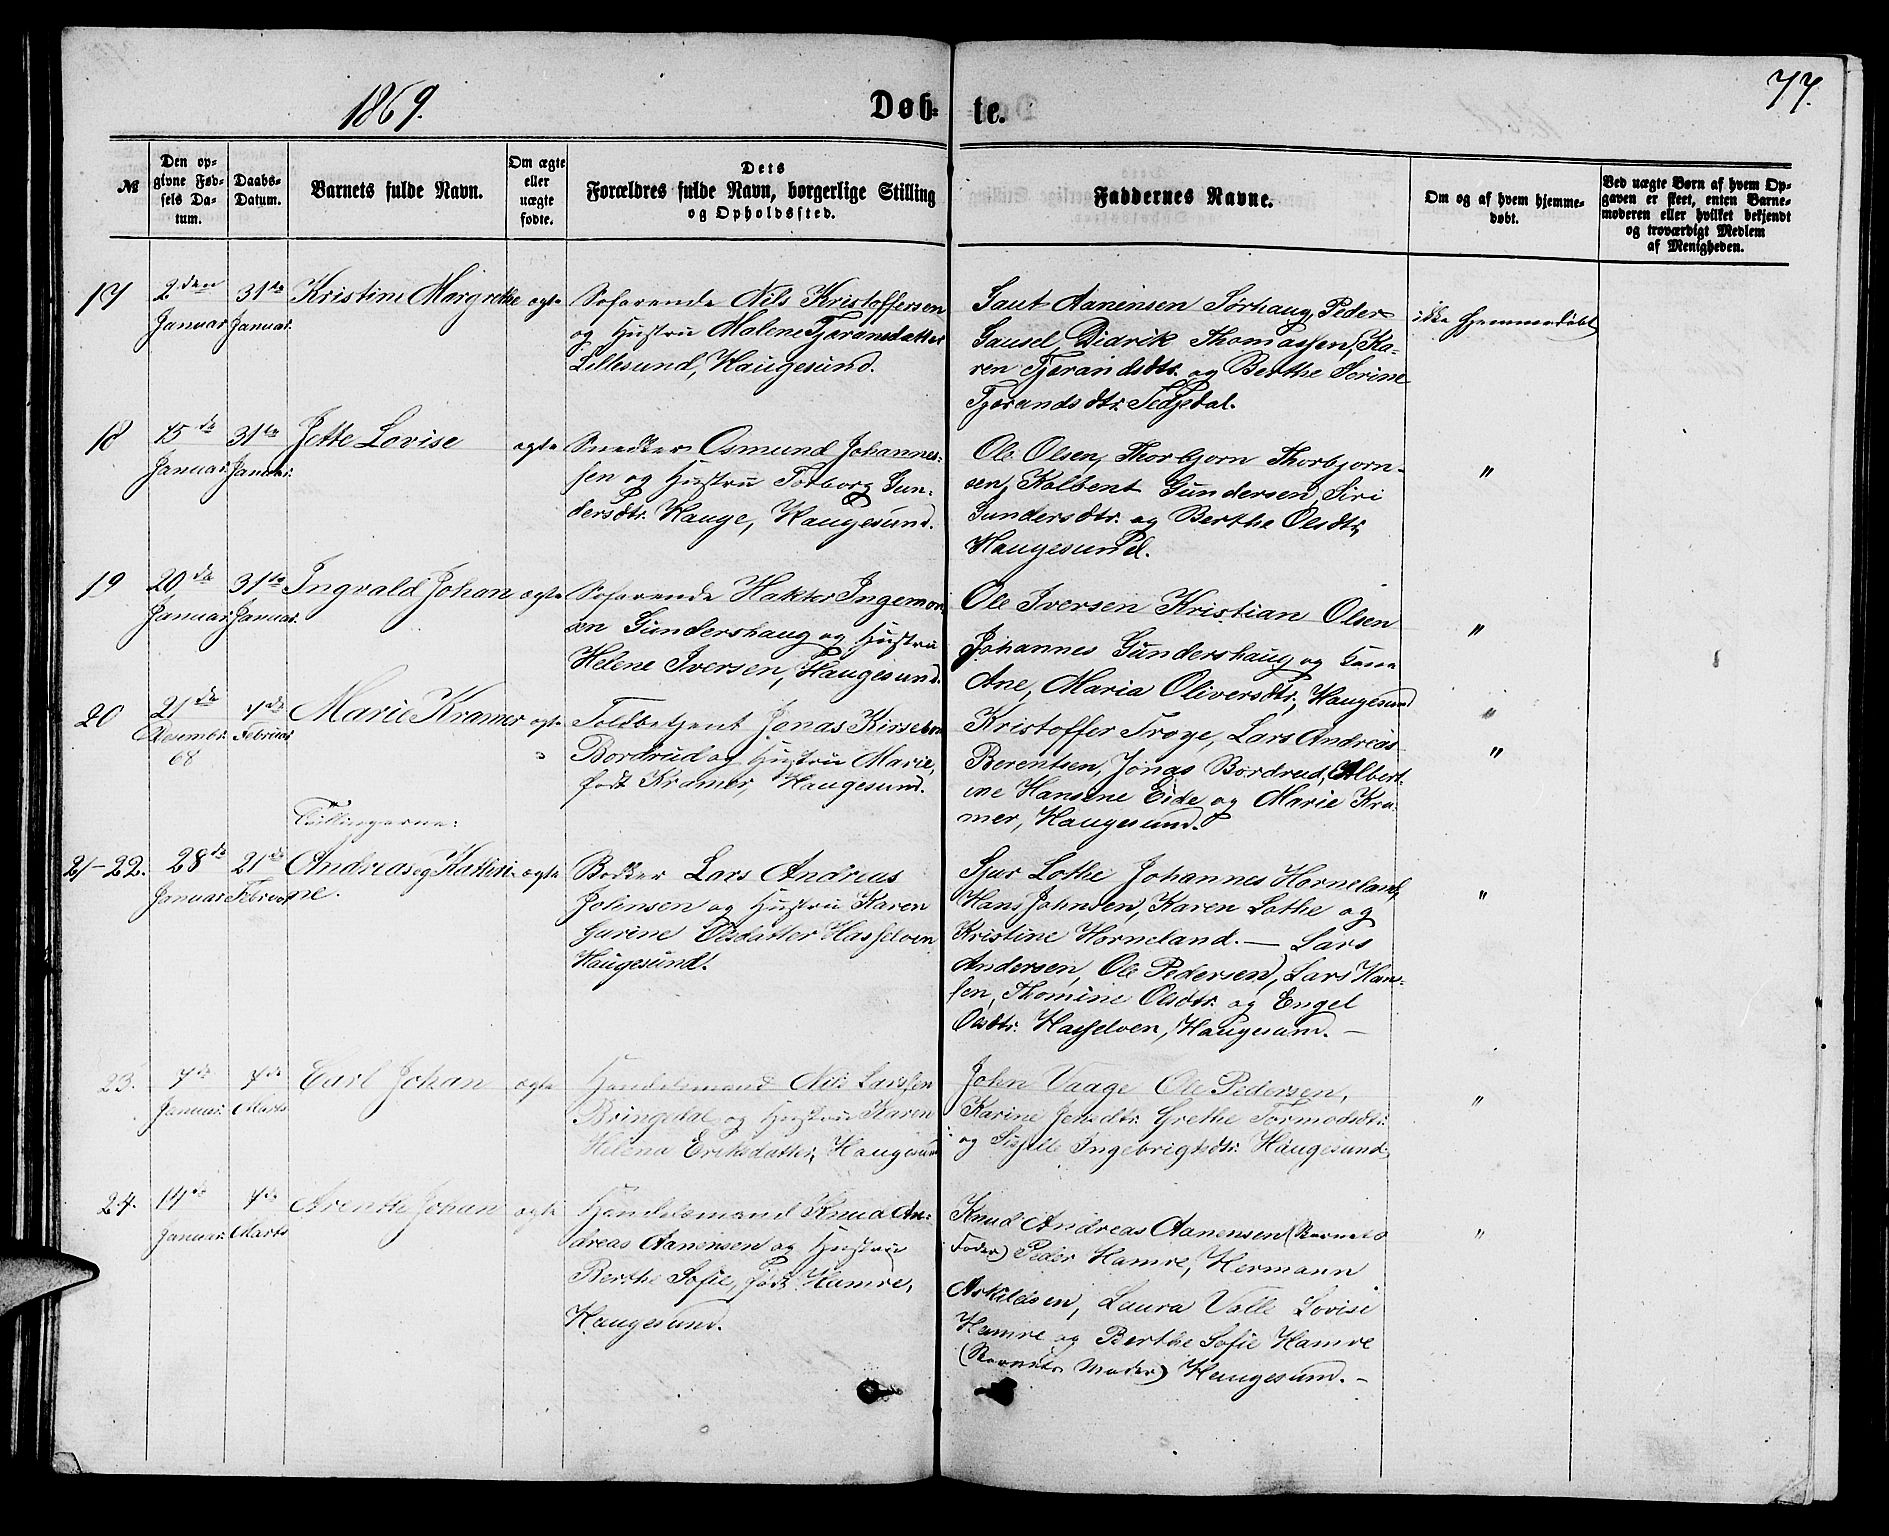 1869.
Døb-
te.
77.
№
Den op-
givne Fød-
sels Da-
tum.
Daabs-
Datum.
Barnets fulde Navn.
Om ægte
eller
uægte
fødte.
Dets
Forældres fulde Navn, borgerlige Stilling
og Opholdssted.
Faddernes Navne.
Om og af hvem hjemme-
døbt.
Ved uægte Børn af hvem Op-
gaven er skeet, enten Barne-
moderen eller hvilket bekjendt
og troværdigt Medlem
af Menigheden.
17
2den
Januar
31te
Januar.
Kristine Margrethe
ægte
Søfarende Nils Kristoffersen
og Hustru Malene Tjerandsdatter
Lillesund, Haugesund.
Gaut Aanensen Sørhaug, Peder
Gausel, Didrik Thomassen, Ka-
ren Tjerandsdtr. og Berthe Serine
Tjerandsdtr.
ikke hjemmedøbt
18
15de
Januar.
31te
Januar.
Jette Lovise
ægte
Snedker Osmund Johannes-
sen og Hustru Torborg Gun-
dersdtr. Hauge, Haugesund.
Ole Olsen, Thorbjørn Thorbjørn-
sen, Kolbent Gundersen, Siri
Gundersdtr. og Berthe Olsdtr.
Haugesund.
"
19
20de
Januar.
31te
Januar.
Ingvald Johan
ægte
Søfarende Ingemon
sen Gundershaug og Hustru
Helene Iversen, Haugesund.
Ole Iversen Kristian Olsen
Johannes Gundershaug og
Ane, Maria Oliversdtr., Haugesund
"
20
21de
Decembr.
68
7de
Februar
Marie Kramer
ægte
Toldbetjent Jonas Kirsebom
Bordrud og Hustru Marie,
født Kramer, Haugesund.
Kristoffer Troye, Lars Andreas
Berentsen, Jonas Bordrud, Albert-
ine Hansene Eide og Marie Kra-
mer, Haugesund.
"
Tvillingerne:
21-22.
28de
Januar
21de
Februar
Andreas og Kathri-
ne.
ægte
Bødker Lars Andreas
Johnsen og Hustru Karen
Gurine Olsdatter Hasselven
Haugesund.
Sjur Lothe Johannes Horneland,
Hans Johnsen, Karen Lothe og
Kristine Horneland. — Lars
Andersen, Ole Pedersen, Lars Han-
sen, Thomine Olsdtr. og Engel
Olsdtr. Hasselven, Haugesund. —
"
23.
7de
Januar.
7de
Marts
Carl Johan
ægte
Handelsmand Nils Larssen
Bringedal og Hustru Karen
Helena Eriksdatter, Haugesund
John Vaage Ole Pedersen,
Karine Grethe Tormodsdtr.
og Ingebrigtsdtr. Haugesund,
"
24.
14de
Januar.
7de
Marts
Arentte Johan
ægte
Handelsmand Knud An-
dreas Aanensen og Hustru
Berthe Sofie, født Hamre,
Haugesund.
Knud Andreas Aanensen (Barnets
Fader) Peder Hamre, Hermann
Askildsen, Laura Valle Lovise
Hamre og Berthe Sofie Hamre
(Barnets Moder) Haugesund. —
"